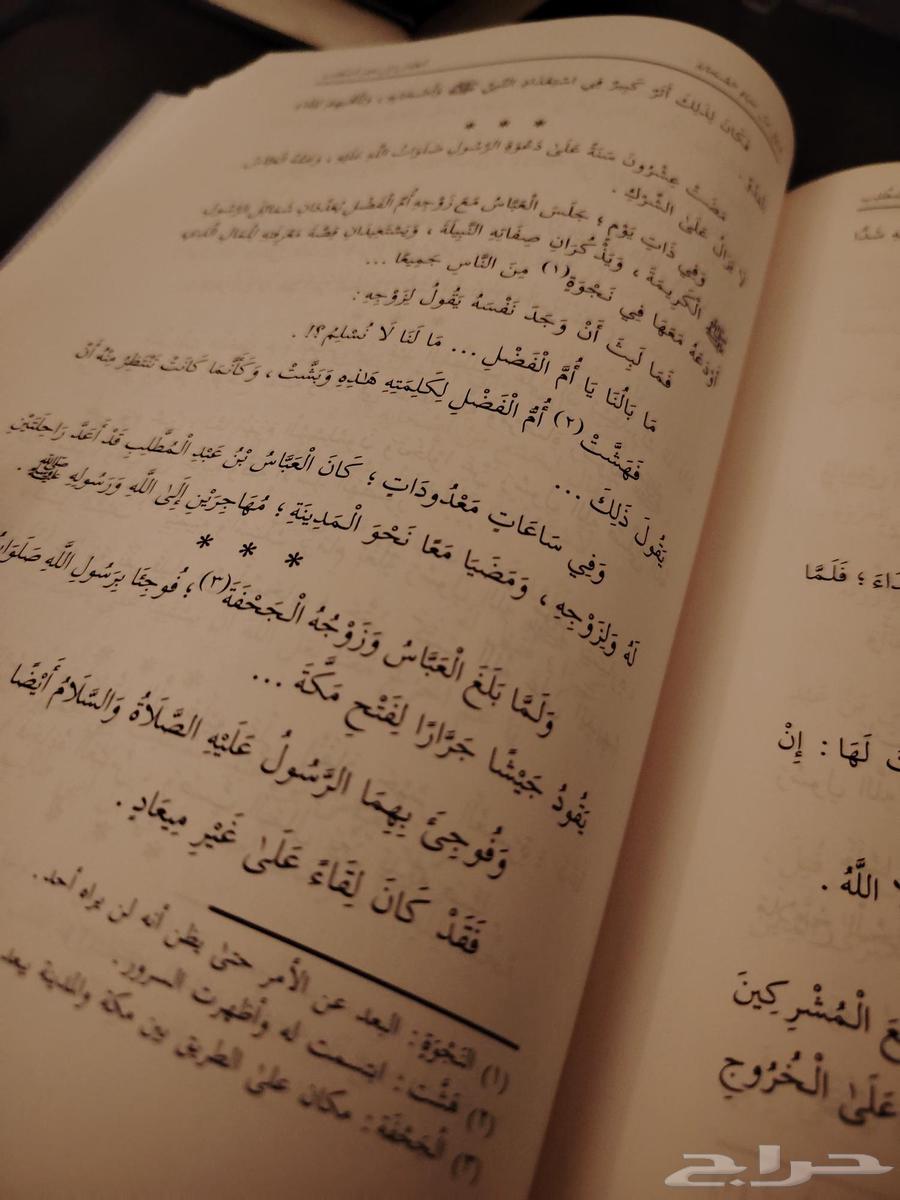 فَكَانَ لِذَلِكَ أَثَرٌ كَبِيرٌ فِي النَّبِيِّ ﷺ
* * *
مَضَتْ عِشْرُونَ سَنَةً عَلَىٰ دَعْوَةِ الرَّسُولِ صَلَوَاتُ اللَّهِ عَلَيْهِ ، وَعَمُّهُ الْعَبَّاسُ
لَا يَزَالُ عَلَىٰ الشِّرْكِ .
وَفِي ذَاتِ يَوْمٍ ؛ جَلَسَ الْعَبَّاسُ مَعَ زَوْجِهِ أُمِّ الْفَضْلِ يُعَدِّدَانِ شَمَائِلَ الرَّسُولِ
ﷺ الْكَرِيمَةَ ، وَيَذْكُرَانِ صِفَاتِهِ النَّبِيلَةَ ، وَيَسْتَعِيدَانِ قِصَّةَ مَعْرِفَتِهِ الْمَالَ الَّذِي
أَوْدَعَهُ مَعَهَا فِي نَجْوَةٍ(١) مِنَ النَّاسِ جَمِيعًا ...
فَمَا لَبِثَ أَنْ وَجَدَ نَفْسَهُ يَقُولُ لِزَوْجِهِ :
مَا بَالُنَا يَا أُمَّ الْفَضْلِ ... مَا لَنَا لَا نُسْلِمُ ؟! .
فَهَشَّتْ(٢) أُمُّ الْفَضْلِ لِكَلِمَتِهِ هَـٰذِهِ وَبَشَّتْ ، وَكَأَنَّمَا كَانَتْ تَنْتَظِرُ مِنْهُ أَنْ
يَقُولَ ذَلِكَ ...
وَفِي سَاعَاتٍ مَعْدُودَاتٍ ؛ كَانَ الْعَبَّاسُ بْنُ عَبْدِ الْمُطَّلِبِ قَدْ أَعَدَّ رَاحِلَتَيْنِ
لَهُ وَلِزَوْجِهِ ، وَمَضَيَا مَعًا نَحْوَ الْمَدِينَةِ ؛ مُهَاجِرَيْنِ إِلَىٰ اللَّهِ وَرَسُولِهِ ﷺ .
* * *
وَلَمَّا بَلَغَ الْعَبَّاسُ وَزَوْجُهُ الْجَحْفَةَ(٣) ؛ فُوجِئَا بِرَسُولِ اللَّهِ
يَقُودُ جَيْشًا جَرَّارًا لِفَتْحِ مَكَّةَ ...
وَفُوجِئَ بِهِمَا الرَّسُولُ عَلَيْهِ الصَّلَاةُ وَالسَّلَامُ أَيْضًا
فَقَدْ كَانَ لِقَاءً عَلَىٰ غَيْرِ مِيعَادٍ .
(١) النَجْوَة : البعد عن الأمر حتىٰ يظن أنه لن يراه أحد .
(٢) هَشَّت : ابتسمت له وأظهرت السرور .
(٣) الْجَحْفَة : مكان علىٰ الطريق بين مكة والمدينة
؛ فَلَمَّا
لَهَا : إِنْ
اللَّهُ .
الْمُشْرِكِينَ
عَلَىٰ الْخُرُوجِ
حراج